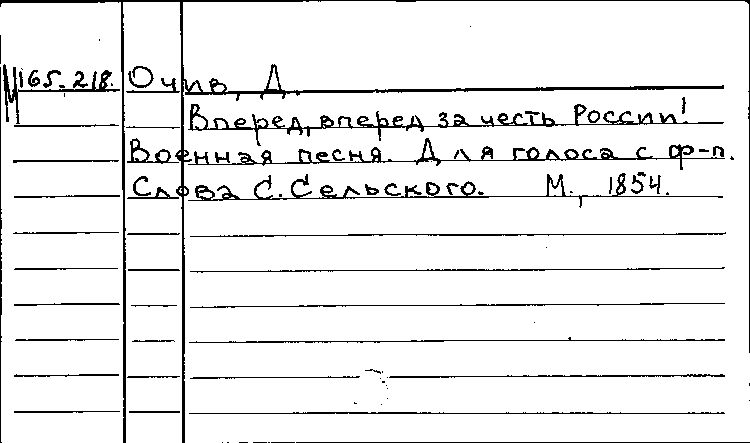 М165.218. Очив, Д.
Вперед, вперед за честь России!
Военная песня. Для голоса с ф-п.
Слова С. Сельского. М., 1854.